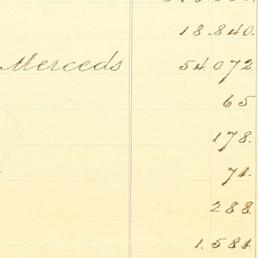 18.840.
Merceds 54.072
65
178.
71.
288
1.581